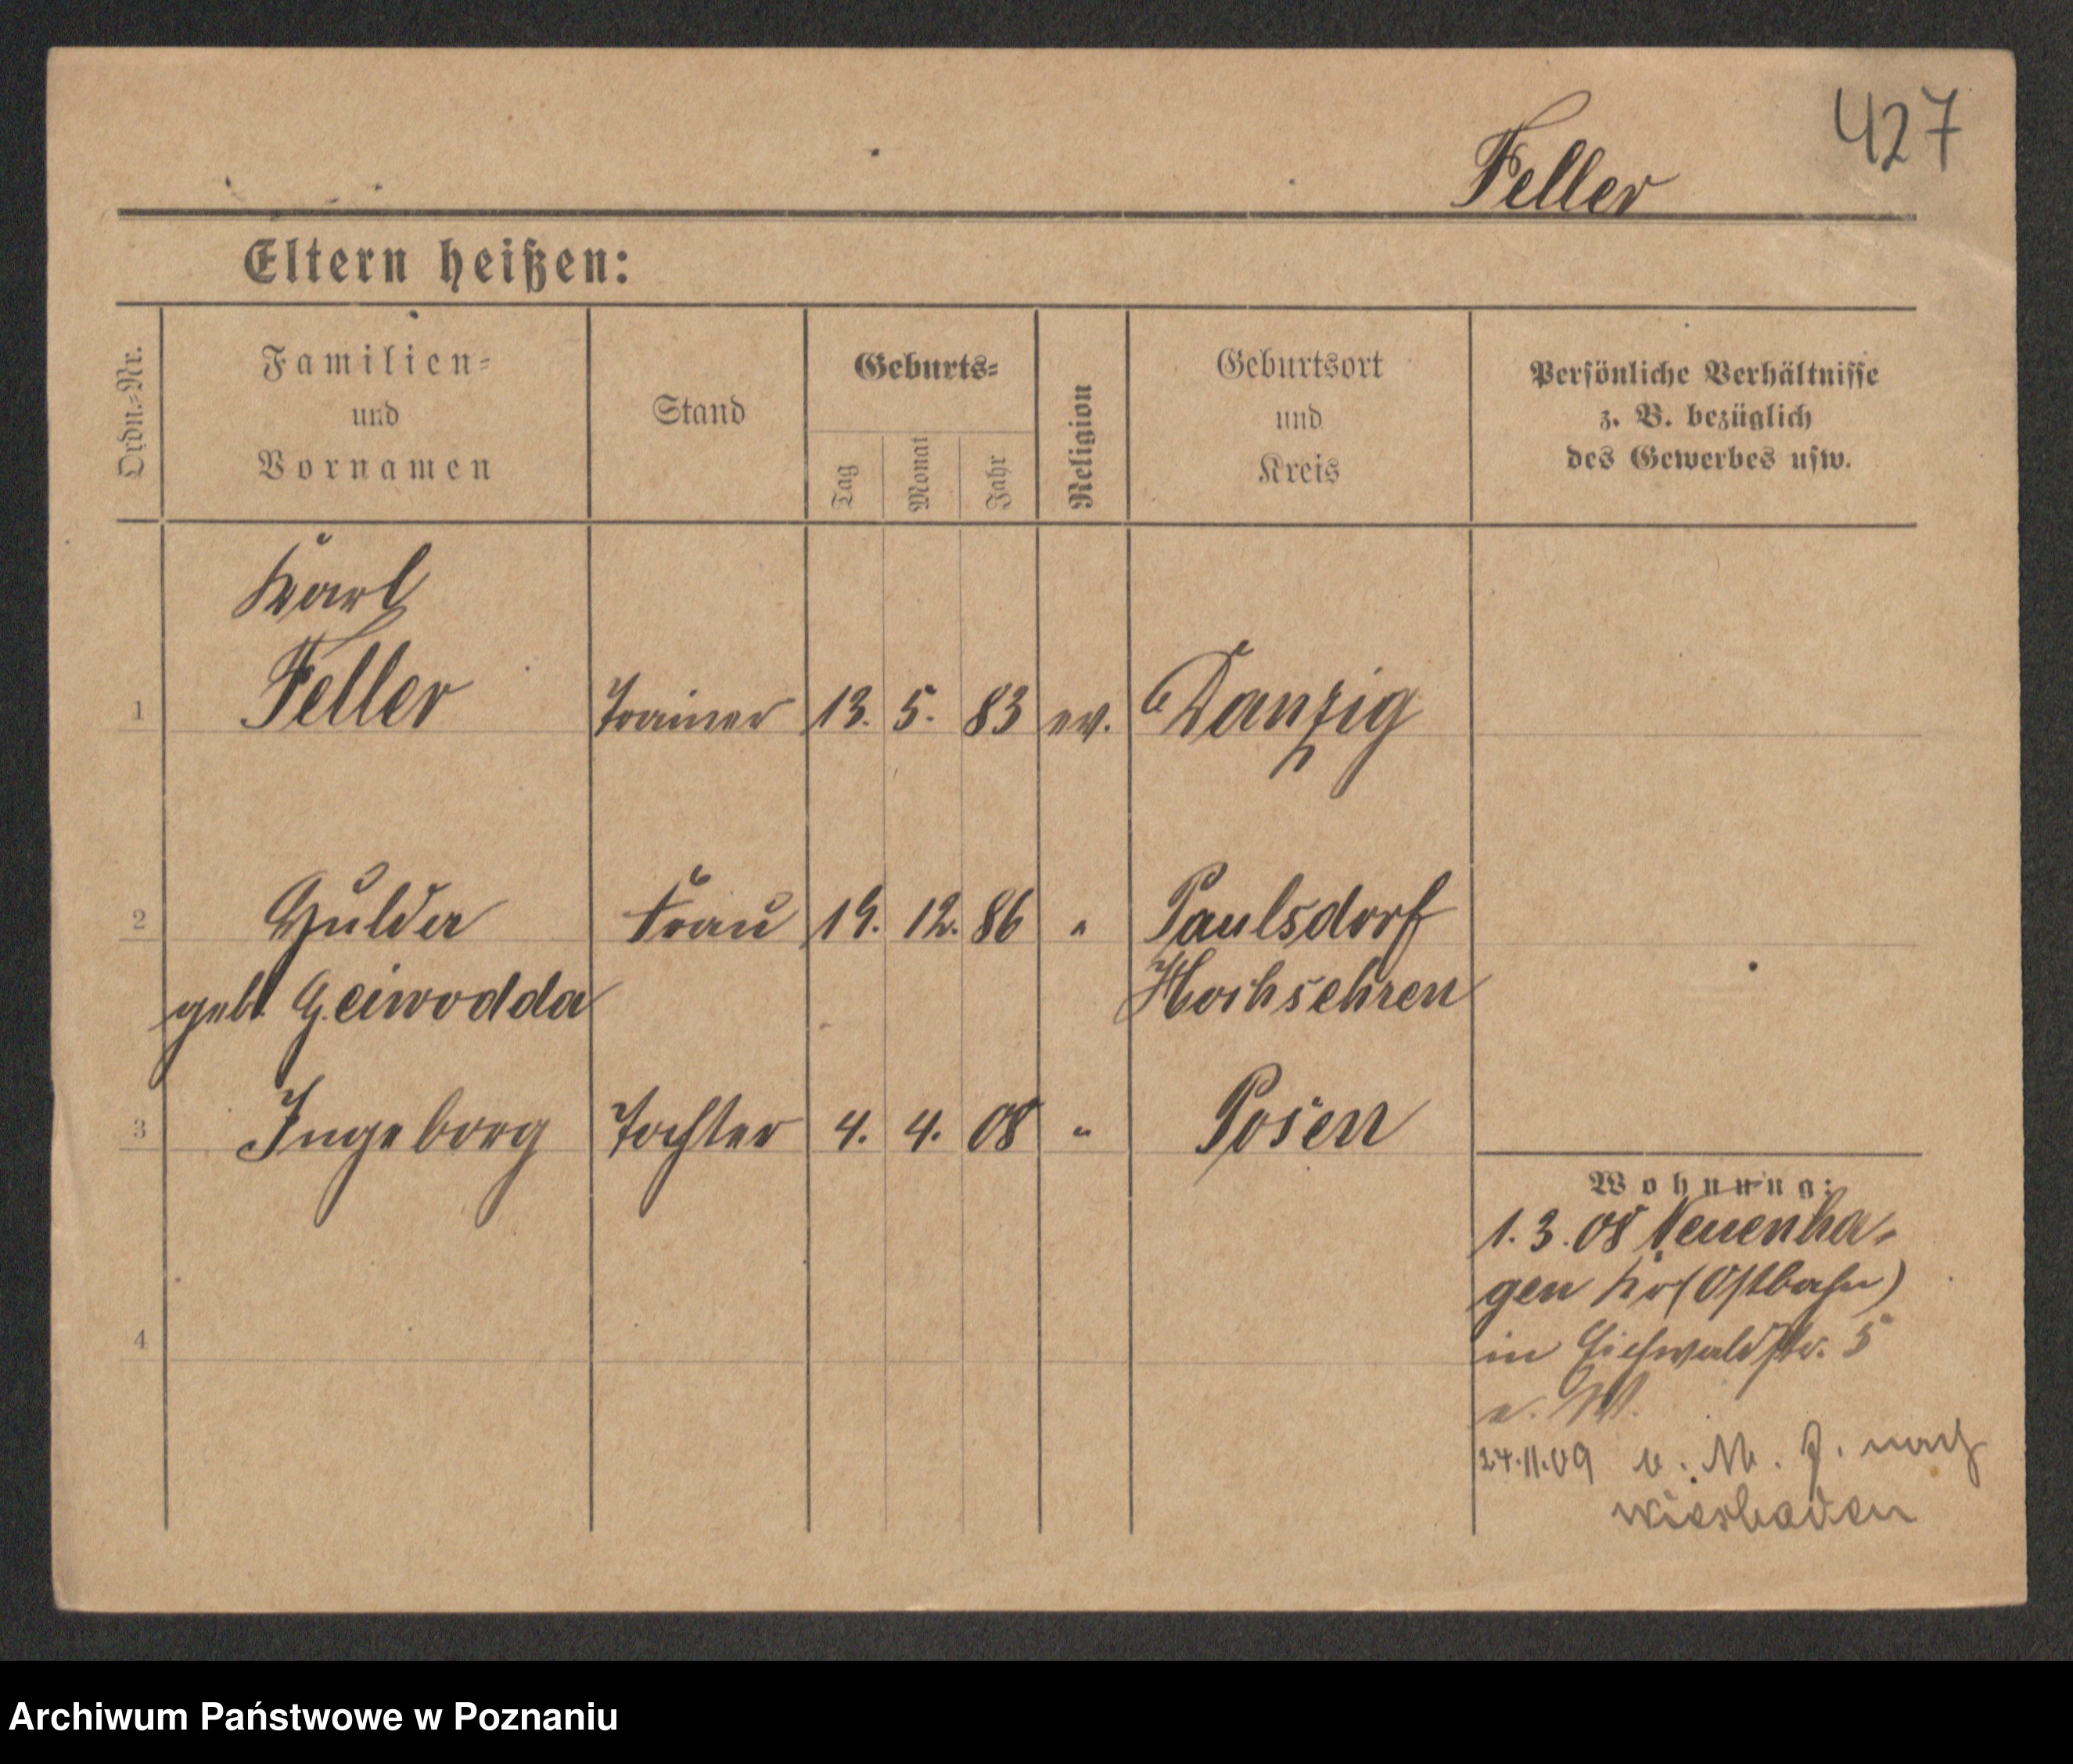 427
Feller
Eltern heißen:
Ordn.-Nr.
Familien-
und
Vornamen
Stand
Geburts-
Tag
Monat
Jahr
Religion
Geburtsort
und
Kreis
Persönliche Verhältnisse
z. B. bezüglich
des Gewerbes usw.
Karl
1 Feller Trainer 13. 5. 83 ev. Danzig
2 Frau 19. 12. 86 " Paulsdorf
geb. Geiwodda
3 Ingeborg Tochter 4. 4. 08 " Posen
Wohnung:
1. 3. 08 Neuenha-
gen (Ostbahn)
in Eichwaldstr. 5
4
24.11.09 v. M. F. nach
Wiesbaden
Archiwum Państwowe w Poznaniu